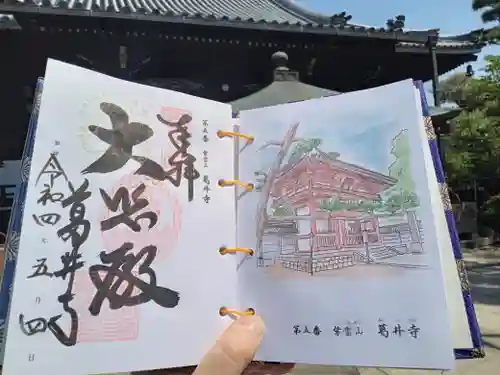 奉拝
第五番 紫雲山 葛井寺
大悲殿
葛井寺
令和四年五月四日
第五番 紫雲山 葛井寺